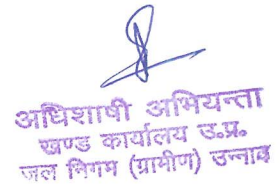 अधिशाषी अभियन्ता
खण्ड कार्यालय उ०प्र०
जल निगम (ग्रामीण) उन्नाव